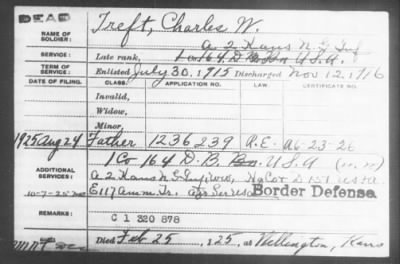 DEAD
NAME OF SOLDIER: Treft, Charles W.
A 2 Kans N. G. Inf
SERVICE: Late rank, 1 Co 164 D B U.S.A.
TERM OF SERVICE: Enlisted July 30, 1915 Discharged Nov 12, 1916
DATE OF FILING. CLASS. APPLICATION NO. LAW. CERTIFICATE NO.
Invalid,
Widow,
Minor,
1925 Aug 24 Father 1236239 A.E.- A6-23-26
1 Co 164 D. B. U S A
ADDITIONAL SERVICES: A 2 Kans N G Inf
10-7-25 E 117 Amm. Tr. Border Defense
REMARKS: C 1 320 878
Died Feb 25, 1925, at Wellington, Kans